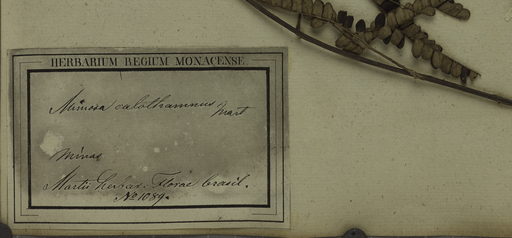 HERBARIUM REGIUM MONACENSE.
Mimosa calothamnus Mart
Minas
Martii Herbar. Florae brasil.
No 1089.